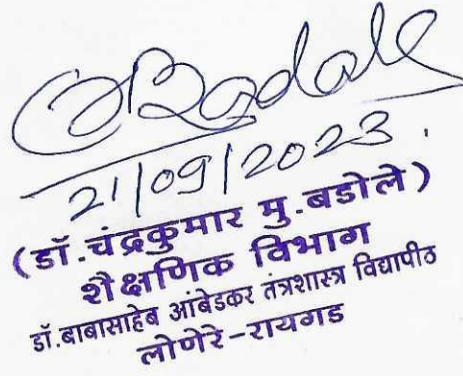 CBadole
21/09/2023.
(डॉ.चंद्रकुमार मु.बडोले)
शैक्षणिक विभाग
डॉ.बाबासाहेब आंबेडकर तंत्रशास्त्र विद्यापीठ
लोणेरे-रायगड